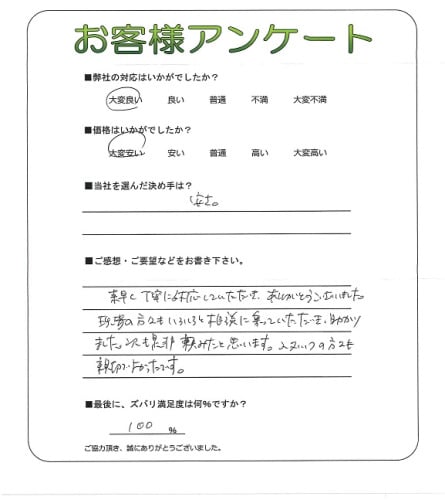 お客様アンケート
■弊社の対応はいかがでしたか?
大変良い 良い 普通 不満 大変不満
■価格はいかがでしたか?
大変安い 安い 普通 高い 大変高い
■当社を選んだ決め手は?
安さ。
■ご感想・ご要望などをお書き下さい。
素早く丁寧に対応していただき、ありがとうございました。
現場の方もいろいろと相談に乗っていただき、助かり
ました。次も是非頼みたいと思います。の方も
親切でよかったです。
■最後に、ズバリ満足度は何%ですか?
100 %
ご協力頂き、誠にありがとうございました。